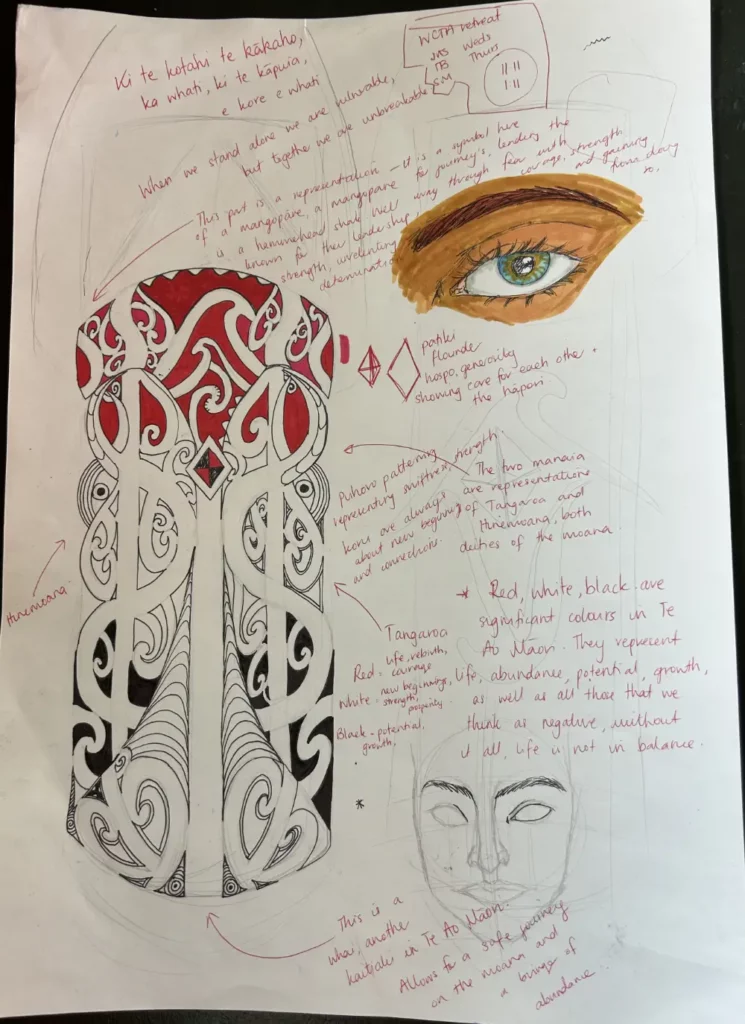 Ki te kotahi te kākaho,
ka whati, ki te kāpuia,
e kore e whati
When we stand alone we are vulnerable,
but together we are unbreakable
WCTA retreat
JAS Weds
TB Thurs
SM
This part is a representation
of a mangopāre, a mangopare
is a hammerhead shark well
known for their leadership,
strength, unrelenting
determination
- It is a symbol here
for journey's, lending the
way through fear with
courage, strength
and gaining
from doing
so.
patiki
flounder
hospo, generosity
showing care for each other +
the hāpori
Puhoro patterning
representing swiftness, strength
Koru are always
about new beginnings
and connections.
The two manaia
are representations
of Tangaroa and
Hinemoana, both
deities of the moana.
Hinemoana.
Tangaroa
Red - life, rebirth,
courage
White - new beginnings,
strength,
prosperity.
Black - potential,
growth.
* Red, white, black are
significant colours in Te
Ao Māori. They represent
life, abundance, potential, growth,
as well as all those that we
think as negative, without
it all, life is not in balance.
*
This is a
whai, another
kaitiaki in Te Ao Māori.
Allows for a safe journey
on the moana and
a bringer of
abundance.